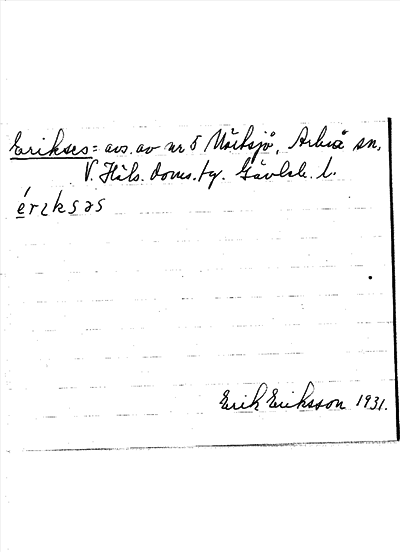 Erikses = avs. av nr 5 Mösbsjö, Arbrå sn,
V. Häls. doms./g. Gävleb. l.
érɩksəs
Erik Eriksson 1931.